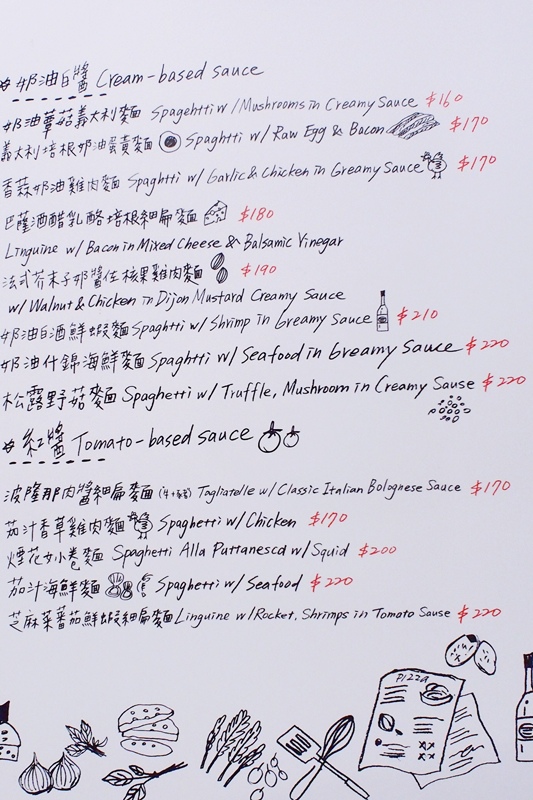 奶油白醬 Cream-based sauce
奶油蘑菇義大利麵 Spagehtti w/Mushrooms in Creamy Sauce $160
義大利培根奶油蛋黃麵 Spaghtti w/ Raw Egg & Bacon $170
香蒜奶油雞肉麵 Spaghtti w/ Garlic & Chicken in Greamy Sauce $170
巴薩酒醋乳酪培根細扁麵 $180
Linguine w/ Bacon in Mixed Cheese & Balsamic Vinegar
法式芥末子奶醬佐核果雞肉麵 $190
w/ Walnut & Chicken in Dijon Mustard Creamy Sauce
奶油白酒鮮蝦麵 Spaghtti w/ Shrimp in Greamy Sauce $210
奶油什錦海鮮麵 Spaghtti w/ Seafood in Greamy Sauce $220
松露野菇麵 Spaghetti w/ Truffle, Mushroom in Creamy Sause $220
紅醬 Tomato-based sauce
波隆那肉醬細扁麵 (牛+豬) Tagliatelle w/ Classic Italian Bolognese Sauce $170
茄汁香草雞肉麵 Spaghetti w/ Chicken $170
煙花女小卷麵 Spaghetti Alla Puttanesca w/ Squid $200
茄汁海鮮麵 Spaghetti w/ Seafood $220
芝麻菜蕃茄鮮蝦細扁麵 Linguine w/Rocket, Shrimps in Tomato Sause $220
PIZZA